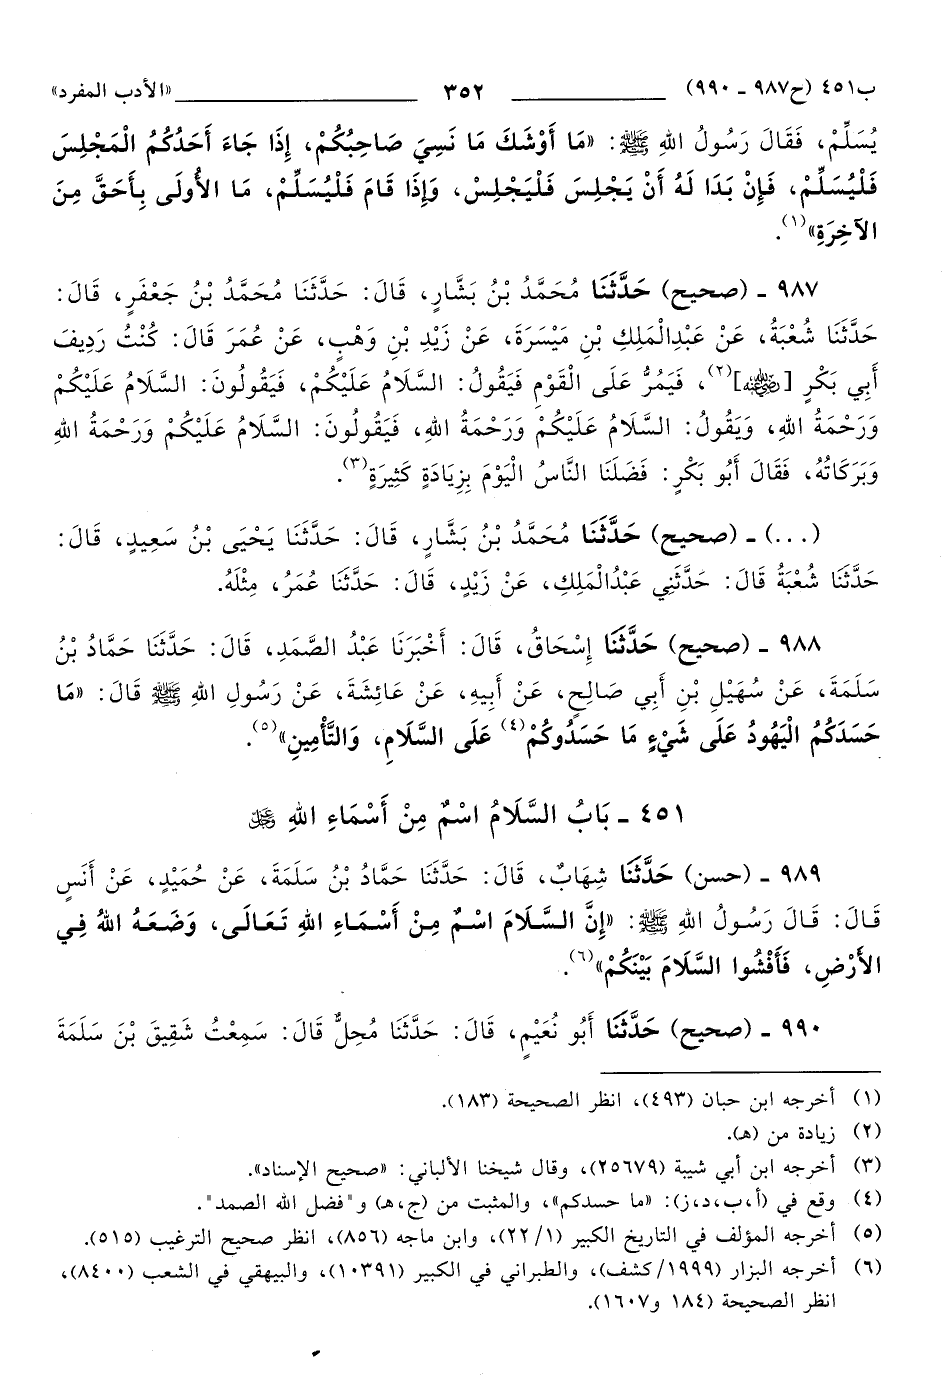 ب٤٥١ (ح٩٨٧ ـ ٩٩٠) ٣٥٢ «الأدب المفرد»
يُسَلِّمْ، فَقَالَ رَسُولُ اللهِ ﷺ: «مَا أَوْشَكَ مَا نَسِيَ صَاحِبُكُمْ، إِذَا جَاءَ أَحَدُكُمُ الْمَجْلِسَ
فَلْيُسَلِّمْ، فَإِنْ بَدَا لَهُ أَنْ يَجْلِسَ فَلْيَجْلِسْ، وَإِذَا قَامَ فَلْيُسَلِّمْ، مَا الأُولَى بِأَحَقَّ مِنَ
الآخِرَةِ»(١).
٩٨٧ ـ (صحيح) حَدَّثَنَا مُحَمَّدُ بْنُ بَشَّارٍ، قَالَ: حَدَّثَنَا مُحَمَّدُ بْنُ جَعْفَرٍ، قَالَ:
حَدَّثَنَا شُعْبَةُ، عَنْ عَبْدِالْمَلِكِ بْنِ مَيْسَرَةَ، عَنْ زَيْدِ بْنِ وَهْبٍ، عَنْ عُمَرَ قَالَ: كُنْتُ رَدِيفَ
أَبِي بَكْرٍ [رضي الله عنه](٢)، فَيَمُرُّ عَلَى الْقَوْمِ فَيَقُولُ: السَّلَامُ عَلَيْكُمْ، فَيَقُولُونَ: السَّلَامُ عَلَيْكُمْ
وَرَحْمَةُ اللهِ، وَيَقُولُ: السَّلَامُ عَلَيْكُمْ وَرَحْمَةُ اللهِ، فَيَقُولُونَ: السَّلَامُ عَلَيْكُمْ وَرَحْمَةُ اللهِ
وَبَرَكَاتُهُ، فَقَالَ أَبُو بَكْرٍ: فَضَلَنَا النَّاسُ الْيَوْمَ بِزِيَادَةٍ كَثِيرَةٍ(٣).
(...) ـ (صحيح) حَدَّثَنَا مُحَمَّدُ بْنُ بَشَّارٍ، قَالَ: حَدَّثَنَا يَحْيَى بْنُ سَعِيدٍ، قَالَ:
حَدَّثَنَا شُعْبَةُ قَالَ: حَدَّثَنِي عَبْدُالْمَلِكِ، عَنْ زَيْدٍ، قَالَ: حَدَّثَنَا عُمَرُ، مِثْلَهُ.
٩٨٨ ـ (صحيح) حَدَّثَنَا إِسْحَاقُ، قَالَ: أَخْبَرَنَا عَبْدُ الصَّمَدِ، قَالَ: حَدَّثَنَا حَمَّادُ بْنُ
سَلَمَةَ، عَنْ سُهَيْلِ بْنِ أَبِي صَالِحٍ، عَنْ أَبِيهِ، عَنْ عَائِشَةَ، عَنْ رَسُولِ اللهِ ﷺ قَالَ: «مَا
حَسَدَكُمُ الْيَهُودُ عَلَى شَيْءٍ مَا حَسَدُوكُمْ(٤) عَلَى السَّلَامِ، وَالتَّأْمِينِ»(٥).
٤٥١ ـ بَابُ السَّلَامُ اسْمٌ مِنْ أَسْمَاءِ اللهِ عز وجل
٩٨٩ ـ (حسن) حَدَّثَنَا شِهَابٌ، قَالَ: حَدَّثَنَا حَمَّادُ بْنُ سَلَمَةَ، عَنْ حُمَيْدٍ، عَنْ أَنَسٍ
قَالَ: قَالَ رَسُولُ اللهِ ﷺ: «إِنَّ السَّلَامَ اسْمٌ مِنْ أَسْمَاءِ اللهِ تَعَالَى، وَضَعَهُ اللهُ فِي
الأَرْضِ، فَأَفْشُوا السَّلَامَ بَيْنَكُمْ»(٦).
٩٩٠ ـ (صحيح) حَدَّثَنَا أَبُو نُعَيْمٍ، قَالَ: حَدَّثَنَا مُحِلٌّ قَالَ: سَمِعْتُ شَقِيقَ بْنَ سَلَمَةَ
(١) أخرجه ابن حبان (٤٩٣)، انظر الصحيحة (١٨٣).
(٢) زيادة من (هـ).
(٣) أخرجه ابن أبي شيبة (٢٥٦٧٩)، وقال شيخنا الألباني: «صحيح الإسناد».
(٤) وقع في (أ،ب،د،ز): «ما حسدكم»، والمثبت من (ج،هـ) و"فضل الله الصمد".
(٥) أخرجه المؤلف في التاريخ الكبير (٢٢/١)، وابن ماجه (٨٥٦)، انظر صحيح الترغيب (٥١٥).
(٦) أخرجه البزار (١٩٩٩/كشف)، والطبراني في الكبير (١٠٣٩١)، والبيهقي في الشعب (٨٤٠٠)،
انظر الصحيحة (١٨٤ و١٦٠٧).